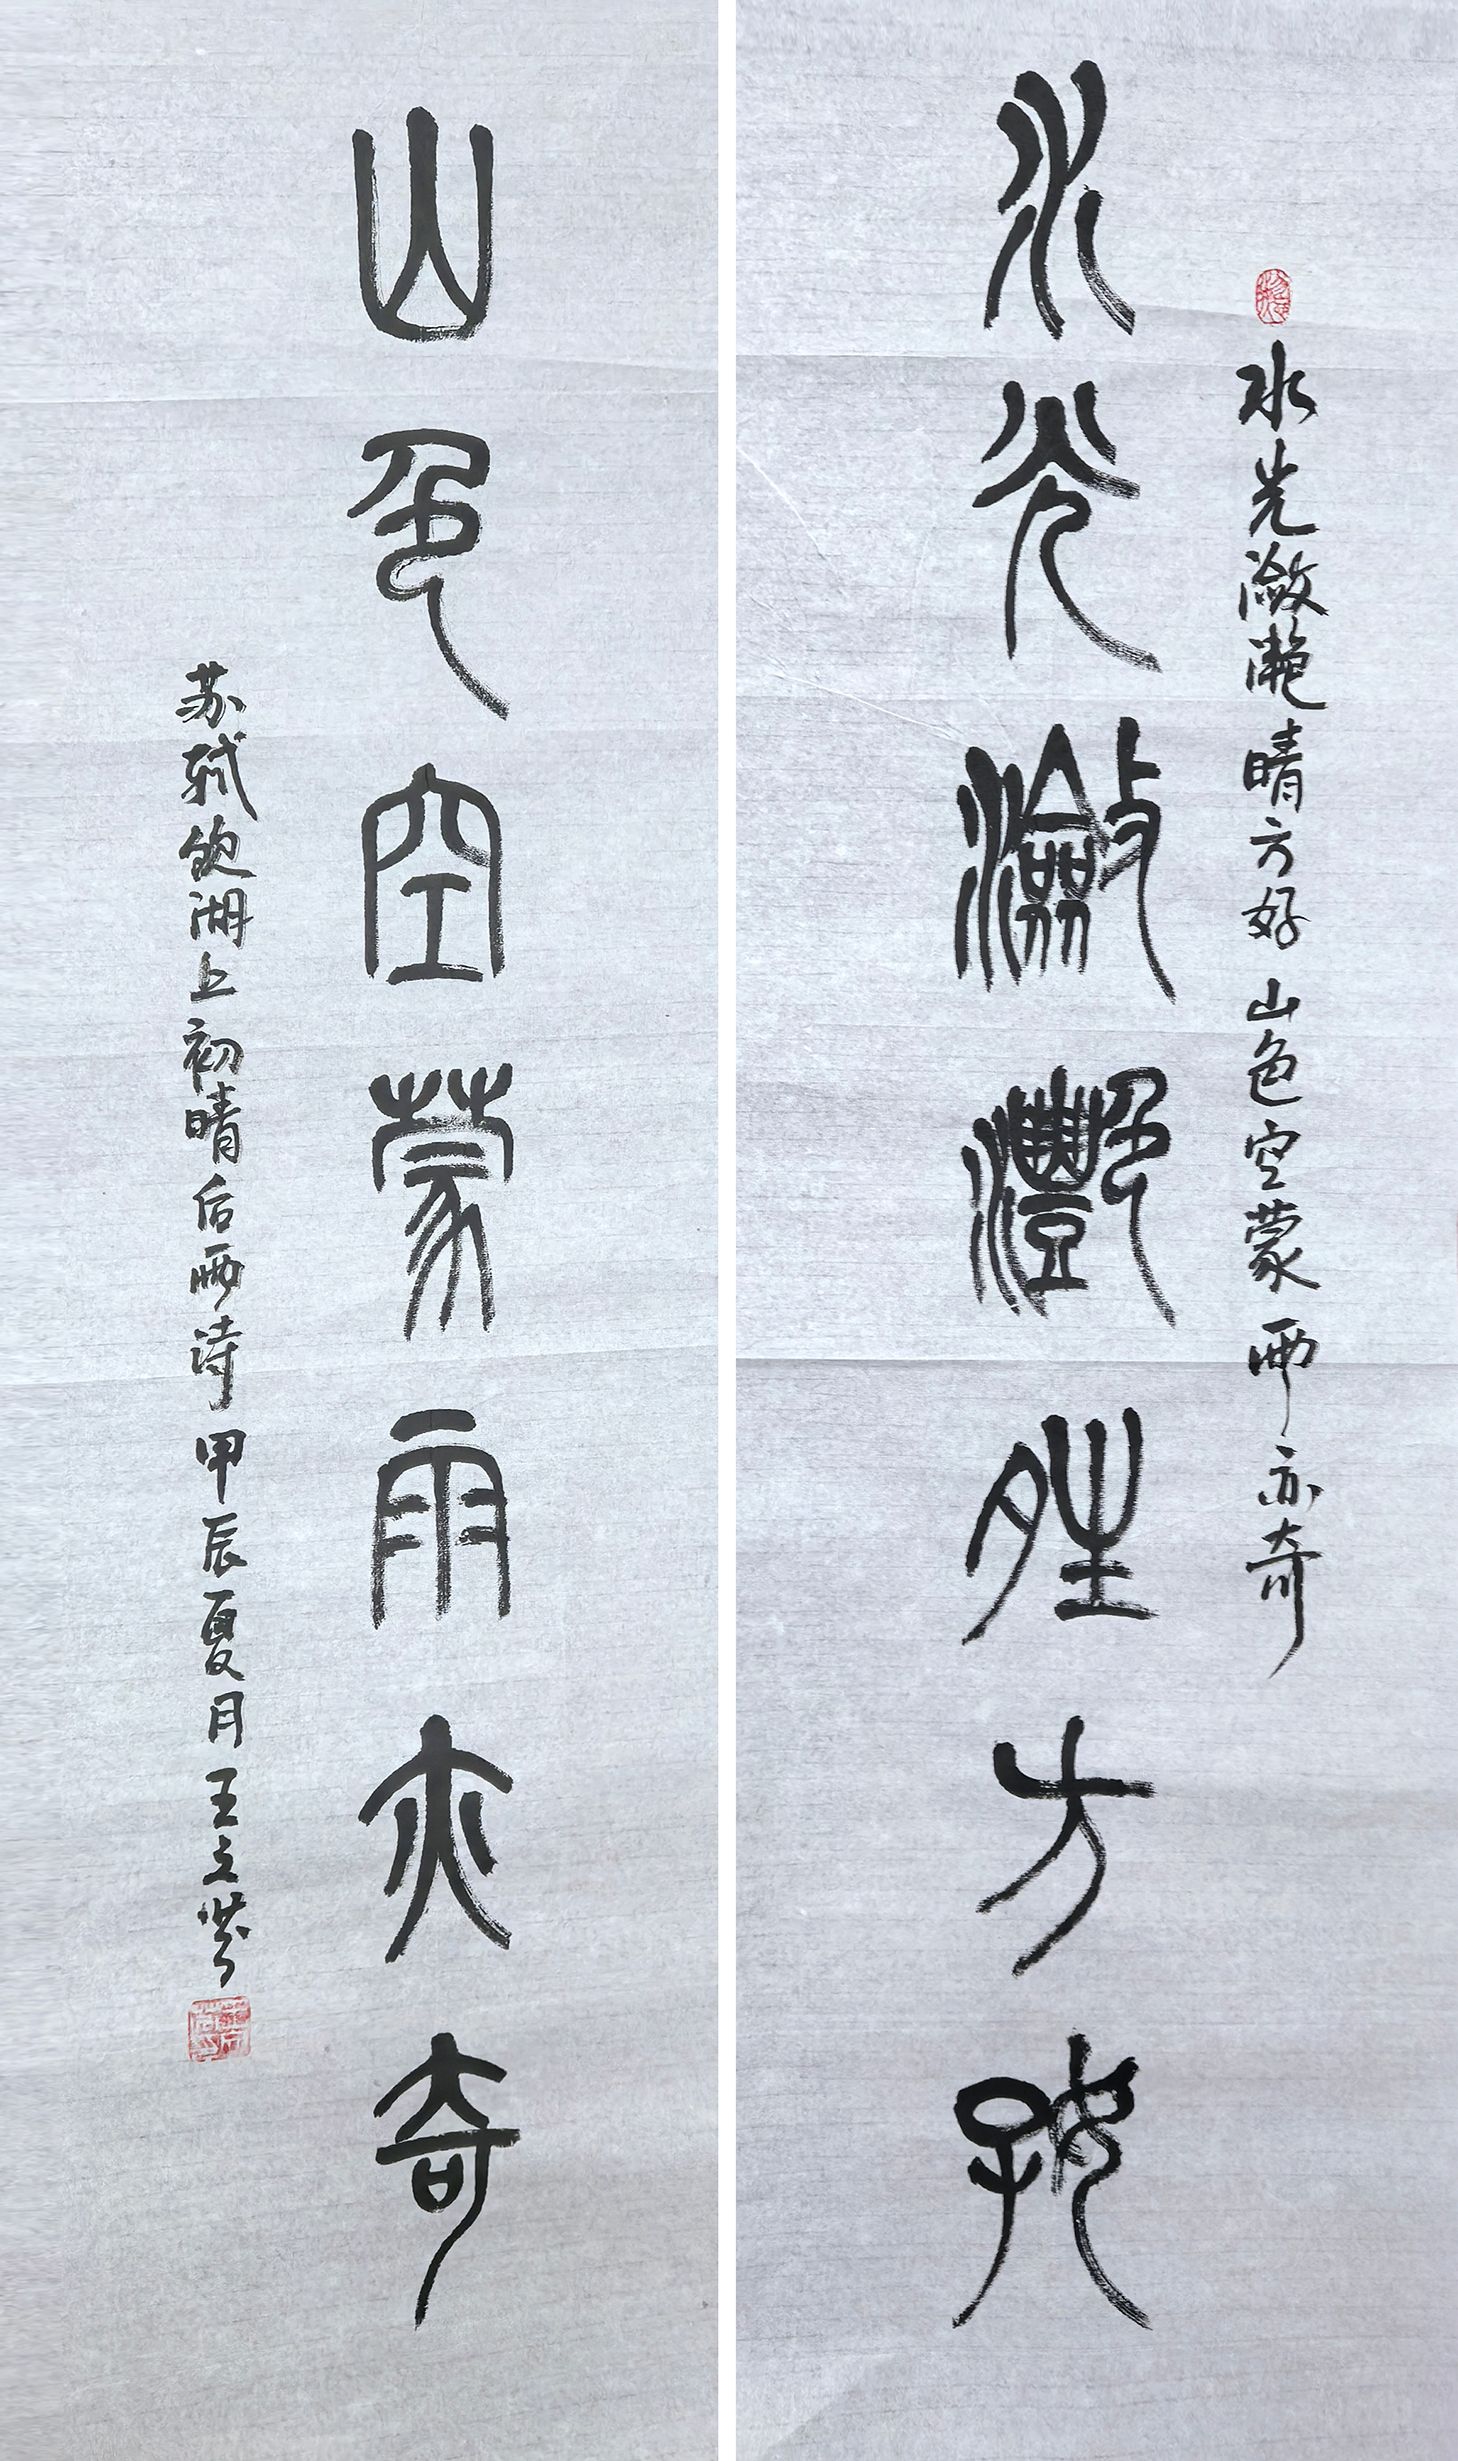 水光潋滟晴方好山色空蒙雨亦奇
水光瀲灔夝方好
山色空蒙雨亦奇
苏轼饮湖上初晴后雨诗甲辰夏月王立